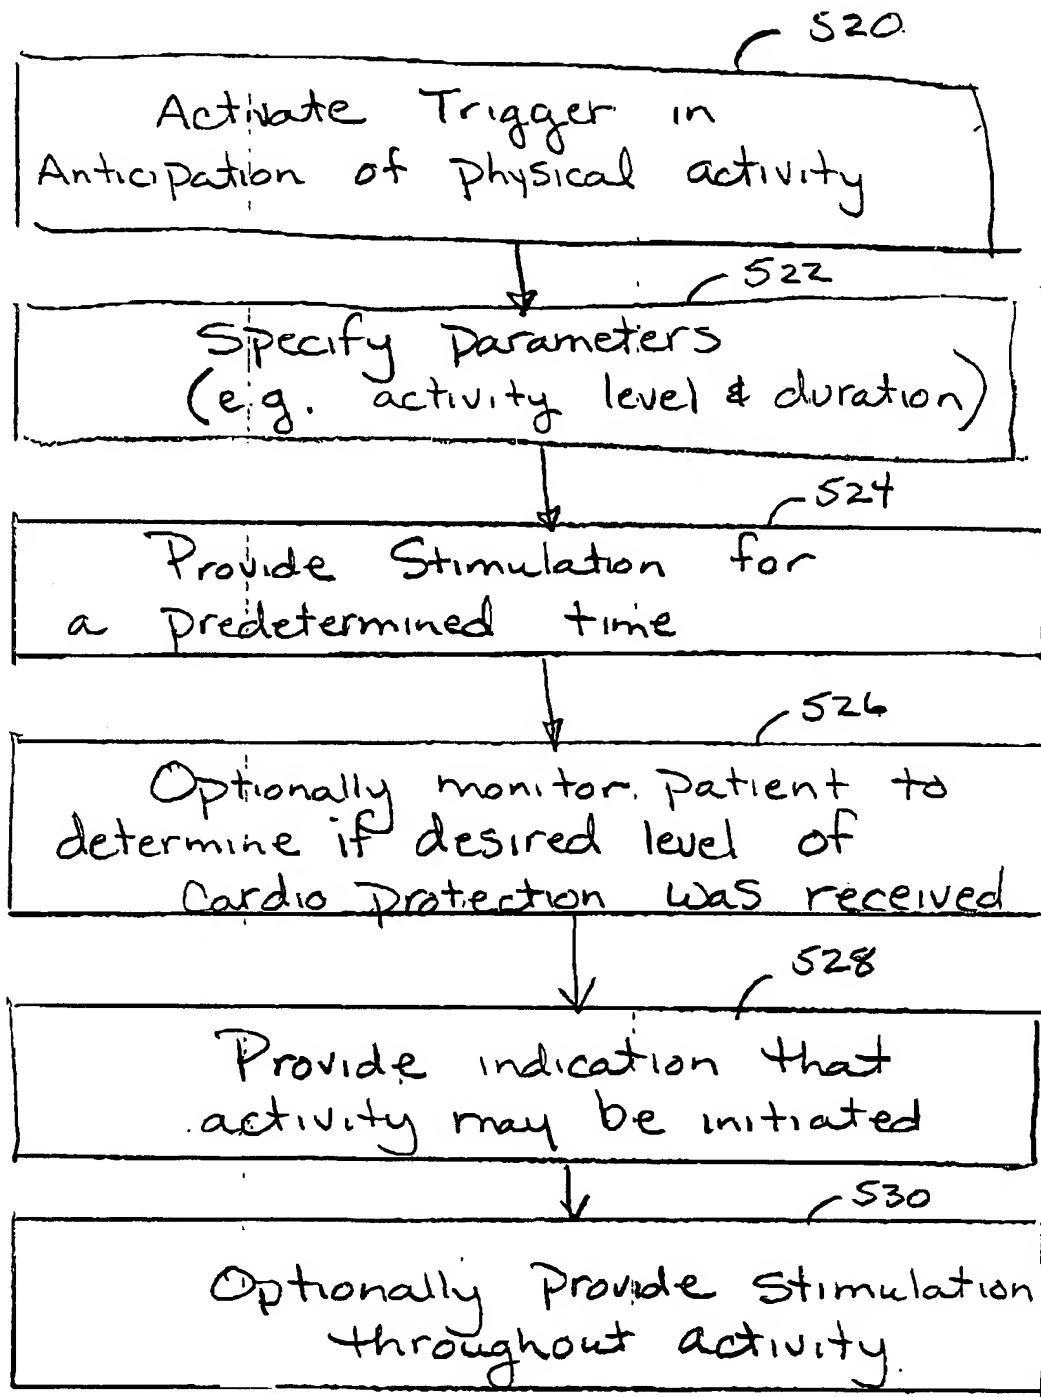 520
Activate Trigger in
Anticipation of physical activity
522
Specify Parameters
(e.g. activity level & duration)
524
Provide Stimulation for
a predetermined time
526
Optionally monitor patient to
determine if desired level of
Cardio protection was received
528
Provide indication that
activity may be initiated
530
Optionally Provide Stimulation
throughout activity.